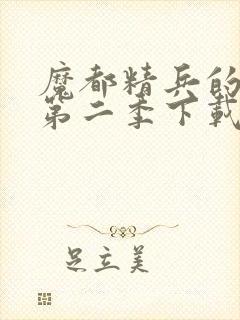 魔都精兵的
第二季下載
足立美